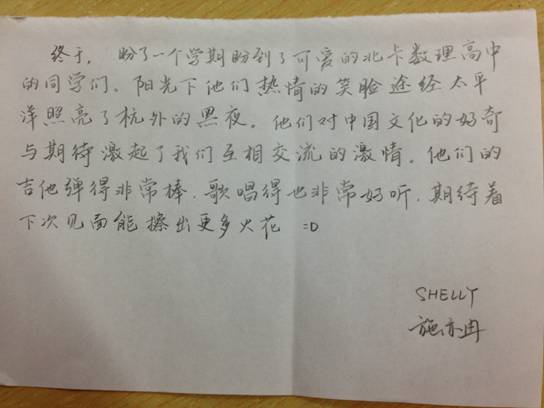 终于，盼了一个学期盼到了可爱的北卡数理高中
的同学们。阳光下他们热情的笑脸途经太平
洋照亮了杭外的黑夜。他们对中国文化的好奇
与期待激起了我们互相交流的激情。他们的
吉他弹得非常棒、歌唱得也非常好听，期待着
下次见面能擦出更多火花 =D
SHELLY
施亦冉